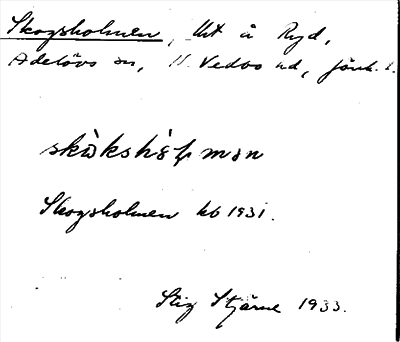 Skogsholmen, tht å Ryd,
Adelövs sn, N. Vedbo hd, Jönk. l.
skɷ̀kshɷ̀ɫmən
Skogsholmen kb 1931.
Stig Stjärne 1933.